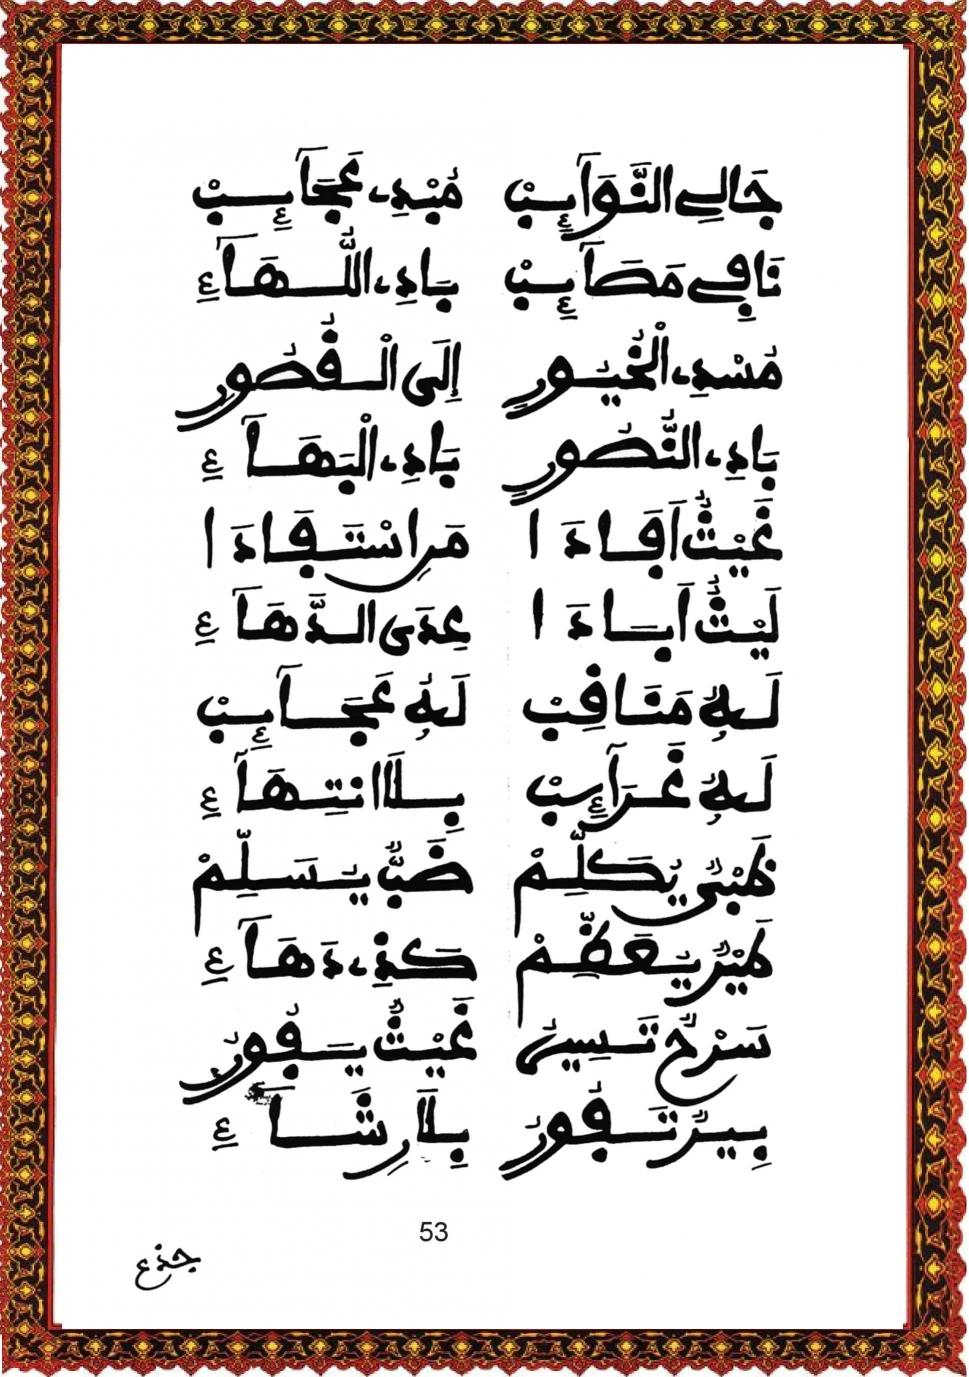 جَالِي النَّوَآئِبْ مُبْدِي عَجَآئِبْ
نَافِي مَصَآئِبْ بَادِي اللُّهَآءِ
مُسْدِي الْخُيُورِ إِلَى الْقُصُورِ
بَادِي النُّصُورِ بَادِي الْبَهَآءِ
غَيْثٌ أَفَادَا مَنِ اسْتَفَادَا
لَيْثٌ أَبَادَا عِدَى الدَّهَآءِ
لَهُ مَنَاقِبْ لَهُ عَجَآئِبْ
لَهُ غَرَآئِبْ بِلَا انْتِهَآءِ
ظَبْيٌ يُكَلِّمْ ضَبٌّ يُسَلِّمْ
طَيْرٌ يُعَظِّمْ كَذِي دَهَآءِ
سَرْحٌ تَسِيرُ غَيْثٌ يَفُورُ
بِيرٌ تَفُورُ بِلَا رِشَآءِ
53